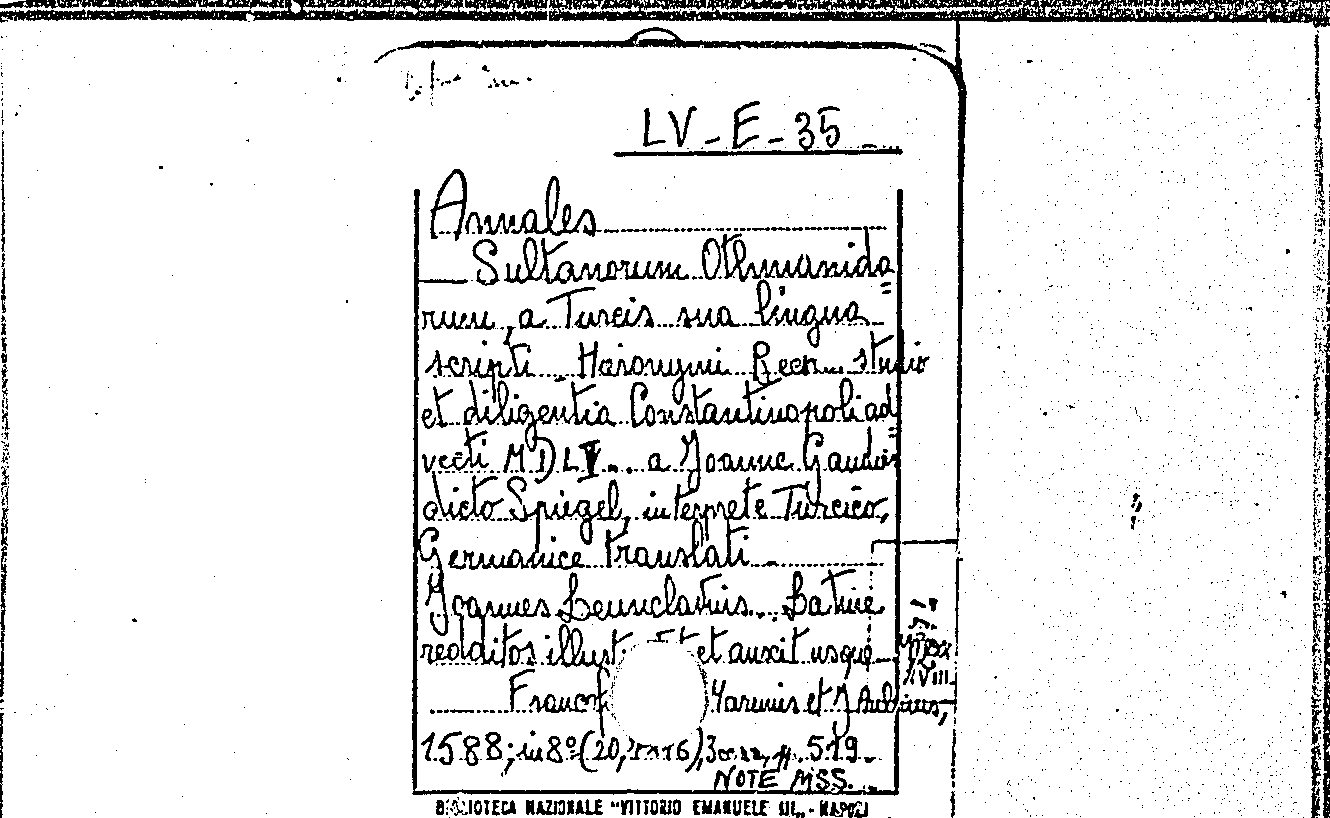 LV-E-35
Annales
Sultanorum Othmanida=
rum, a Turcis sua lingua
scripti Hieronymi Beck studio
et diligentia Constantinopoli ad=
vecti MDLI... a Joanne Gaudier
dicto Spiegel, interprete Turcico,
Germanice translati
Joannes Leunclavius... Latine
redditos illust et auxit usque
Francof Marnius et J Aubrius,
XVIII.
1588; in 8º (20, 519.
NOTE MSS.
BIBLIOTECA NAZIONALE "VITTORIO EMANUELE III" - NAPOLI